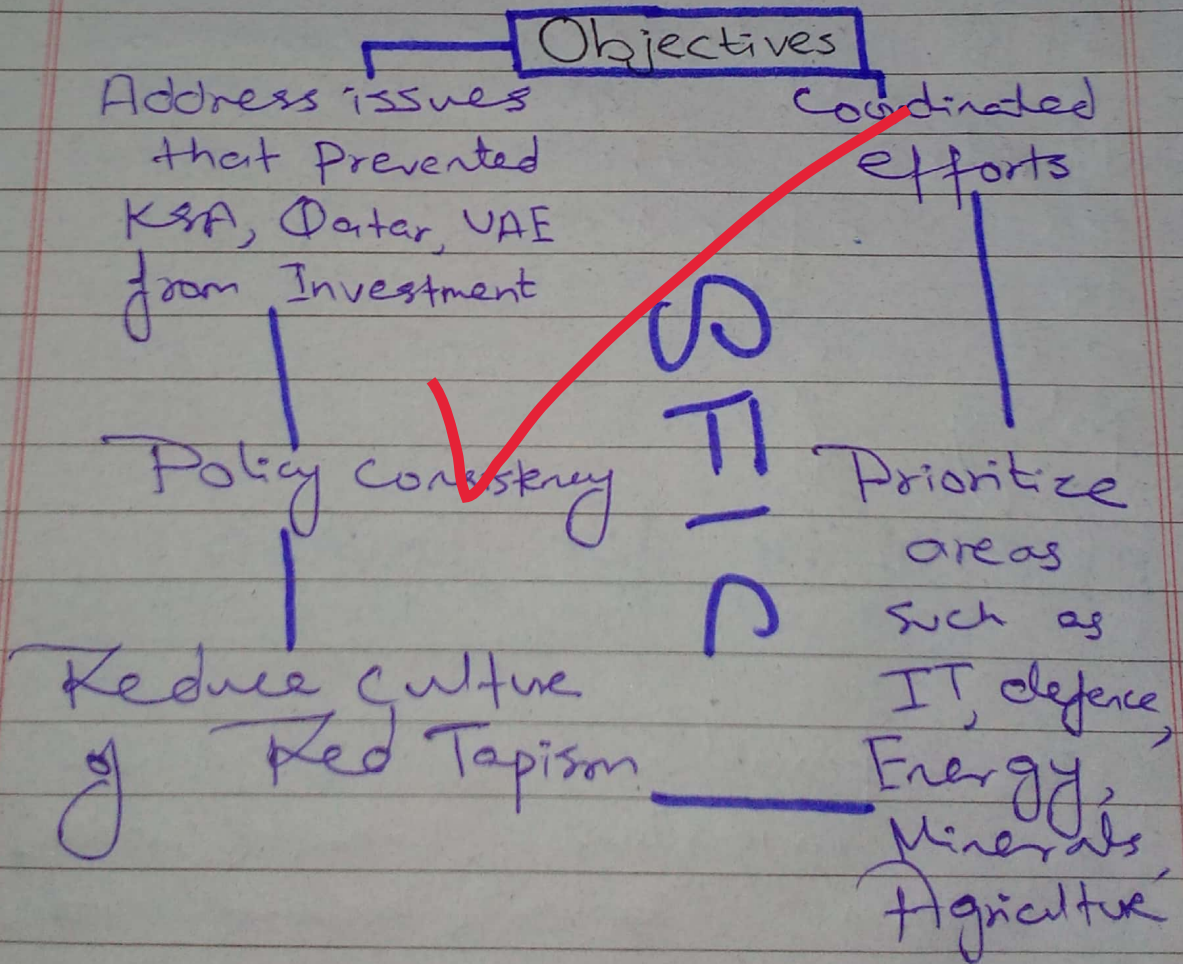 Objectives
Address issues
that Prevented
KSA, Qatar, UAE
from Investment
Policy Consistency
Reduce Culture
of Red Tapism
SFIC
Coordinated
efforts
Prioritize
areas
such as
IT, defence,
Energy,
Minerals,
Agriculture